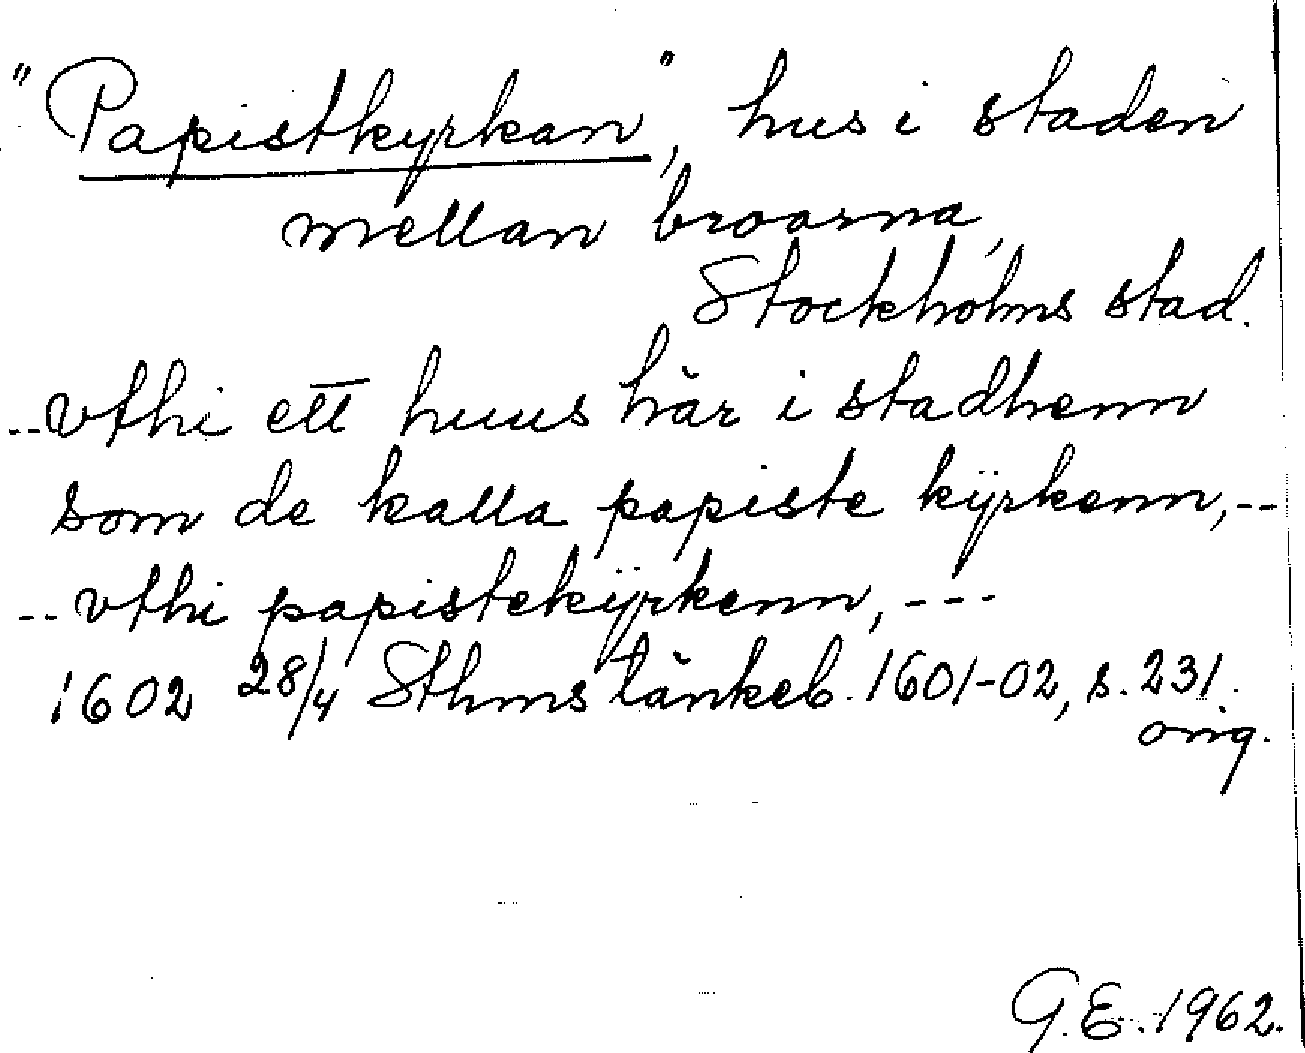 "Papistkyrkan", hus i staden
mellan broarna,
Stockholms stad.
--vthi ett huus här i stadhenn
som de kalla papiste kÿrkenn,--
--vthi papistekÿrkenn,---
1602 28/4 Sthms tänkeb. 1601-02, s. 231.
orig.
G.E. 1962.